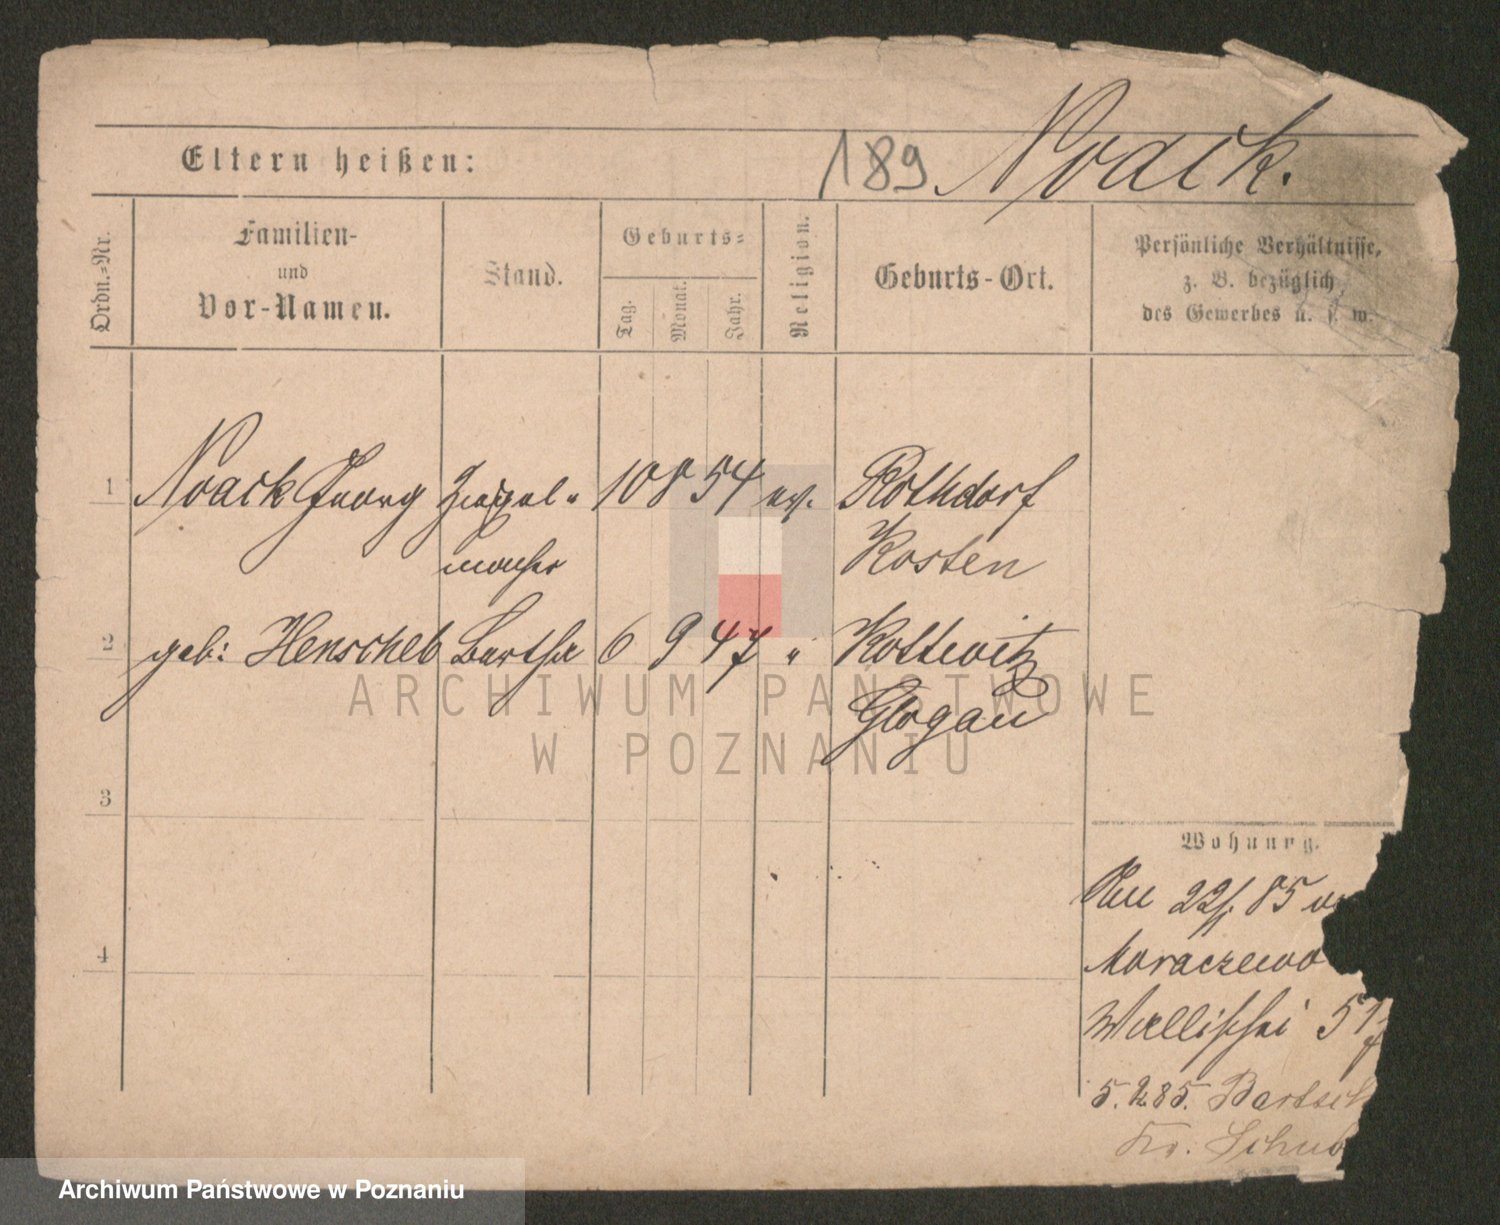 189 Noack.
Eltern heißen:
Ordn.=Nr.
Familien-
und
Vor-Namen.
Stand.
Geburts=
Tag.
Monat.
Jahr.
Religion.
Geburts-Ort.
Persönliche Verhältnisse,
z. B. bezüglich
des Gewerbes u. s. w.
1 Noack Georg Ziegel- 10 8 54 ev. Rothdorf
Kosten
2 geb: Henschel Bertha 6 9 47 " Kottwitz
Glogau
3
4
Wohnung.
22/ 85
Moraczewo
Wallischei 51
5.2.85. Bartsch
Kr.
ARCHIWUM PAŃSTWOWE
W POZNANIU
Archiwum Państwowe w Poznaniu